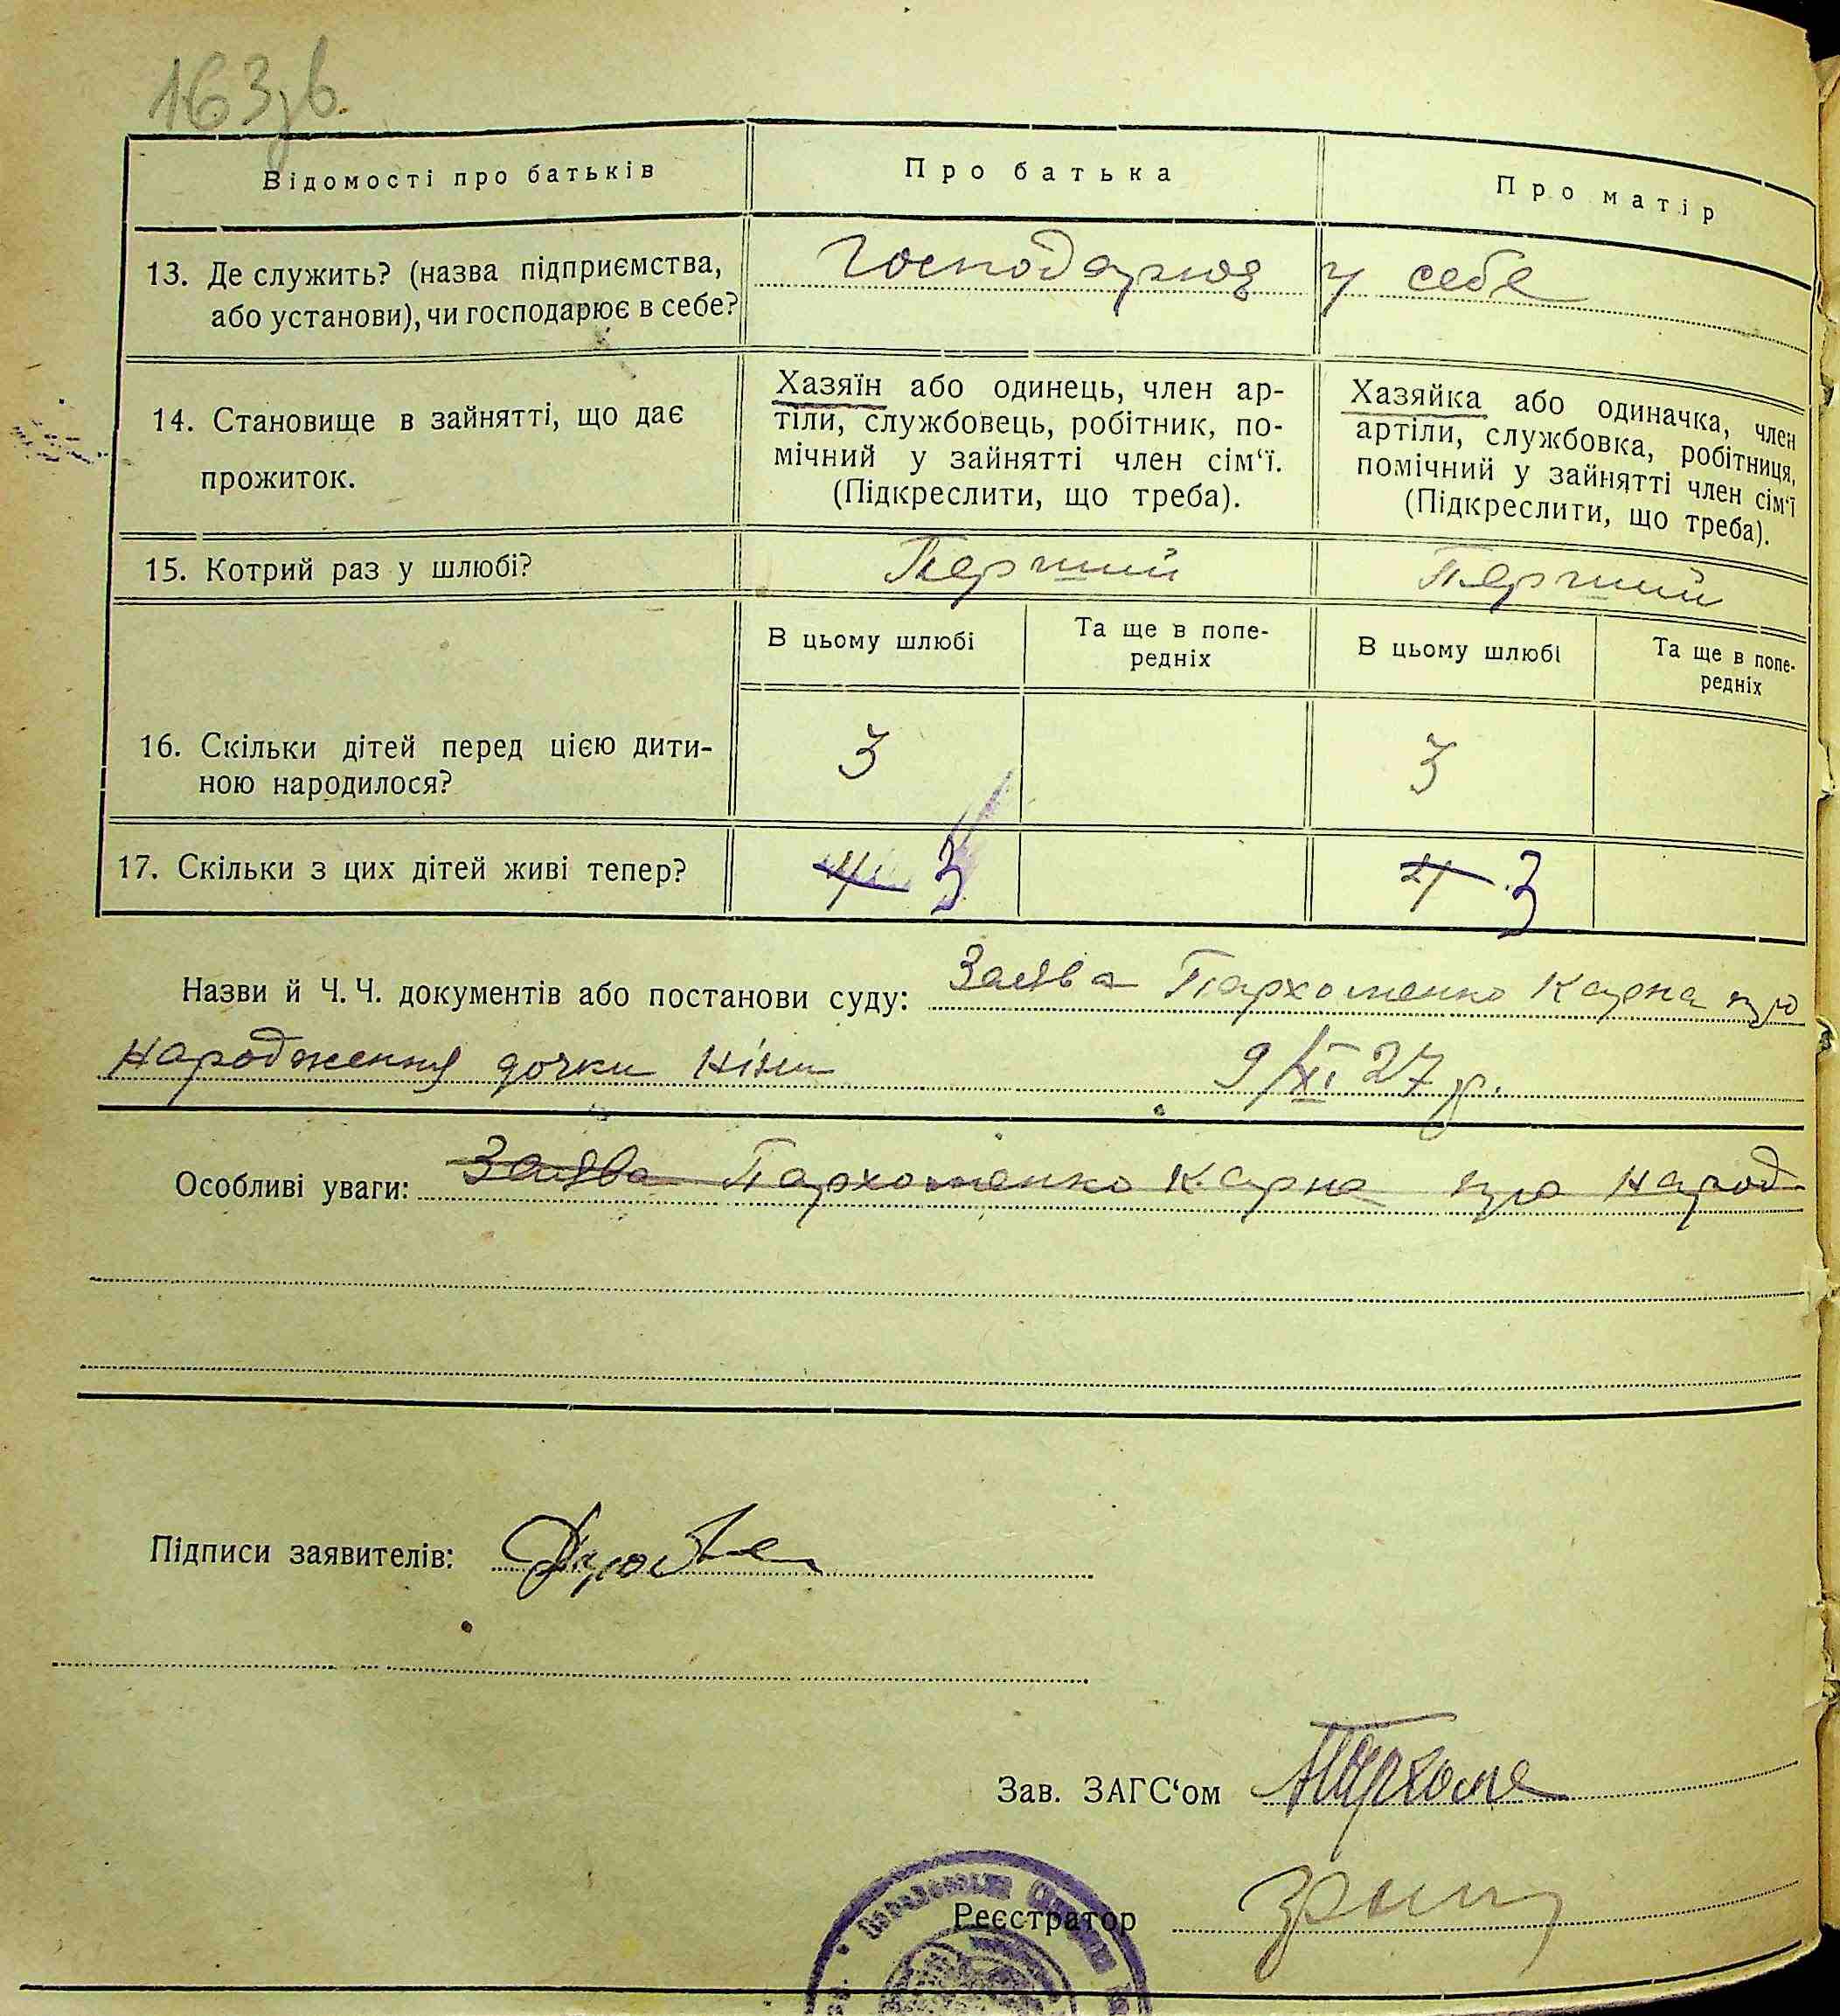 163зв.
Відомості про батьків
Про батька
Про матір
13. Де служить? (назва підприємства,
або установи), чи господарює в себе?
Господарює у себе
14. Становище в зайнятті, що дає
прожиток.
Хазяїн або одинець, член ар-
тіли, службовець, робітник, по-
мічний у зайнятті член сім‘ї.
(Підкреслити, що треба).
Хазяйка або одиначка, член
артіли, службовка, робітниця,
помічний у зайнятті член сім‘ї
(Підкреслити, що треба).
15. Котрий раз у шлюбі?
Перший
Перший
В цьому шлюбі
Та ще в попе-
редніх
В цьому шлюбі
Та ще в попе-
редніх
16. Скільки дітей перед цією дити-
ною народилося?
3
3
17. Скільки з цих дітей живі тепер?
4 3
4 3
Назви й Ч. Ч. документів або постанови суду: Заява Пархоменко Карна про
народження дочки Ніни 9/XI 27 р.
Особливі уваги: Заява Пархоменко Карна про народ
Підписи заявителів:
Зав. ЗАГС‘ом
Реєстратор